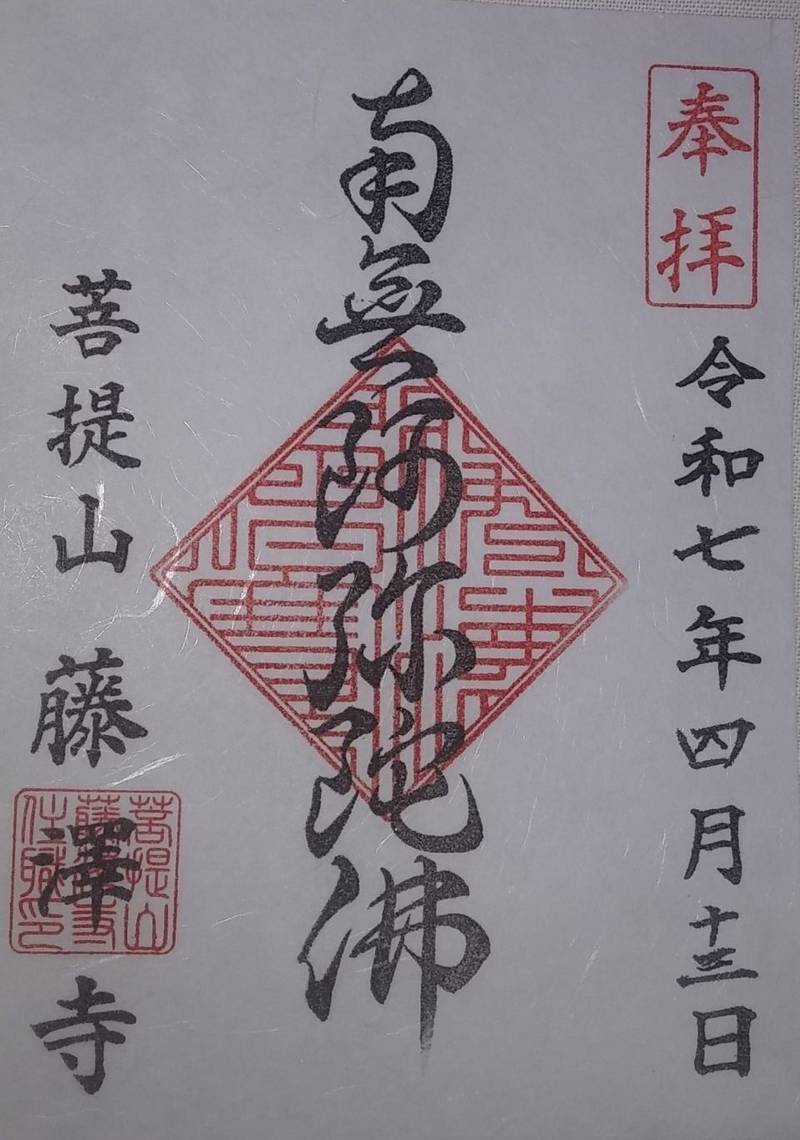 奉拝
令和七年四月十三日
南無阿弥陀佛
菩提山 藤澤寺
菩提山
藤澤寺
住職印